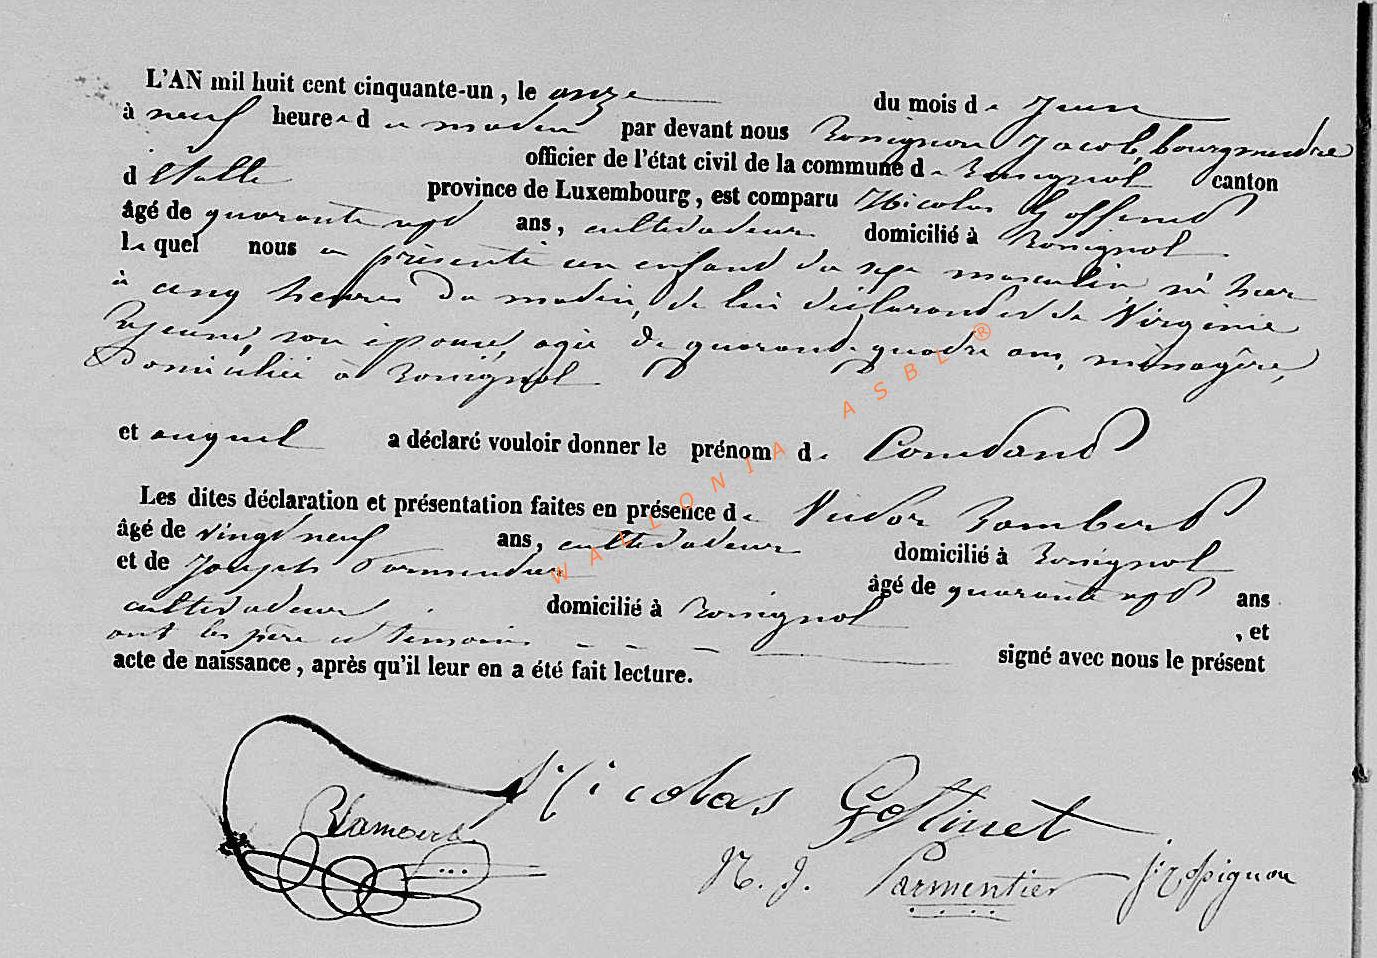 L'AN mil huit cent cinquante-un, le onze du mois de Juin
à neuf heures du matin par devant nous Rossignon Jacob, bourgmestre
officier de l'état civil de la commune de Rossignol canton
d'Etalle province de Luxembourg, est comparu Nicolas Goffinet
âgé de quarante sept ans, cultivateur domicilié à Rossignol
lequel nous a présenté un enfant du sexe masculin né hier
à cinq heures du matin, de lui déclarant et de Virginie
Lejeune, son épouse, agée de quarante quatre ans, ménagère,
Domiciliée à Rossignol
et auquel a déclaré vouloir donner le prénom de Constant
Les dites déclaration et présentation faites en présence de Victor Lambert
âgé de vingt neuf ans, cultivateur domicilié à Rossignol
et de Joseph Parmentier âgé de quarante sept ans
cultivateur domicilié à Rossignol, et
ont les père et témoins signé avec nous le présent
acte de naissance, après qu'il leur en a été fait lecture.
Nicolas Goffinet
Lambert
N. J. Parmentier
J. Rossignon
WALLONIA ASBL ®